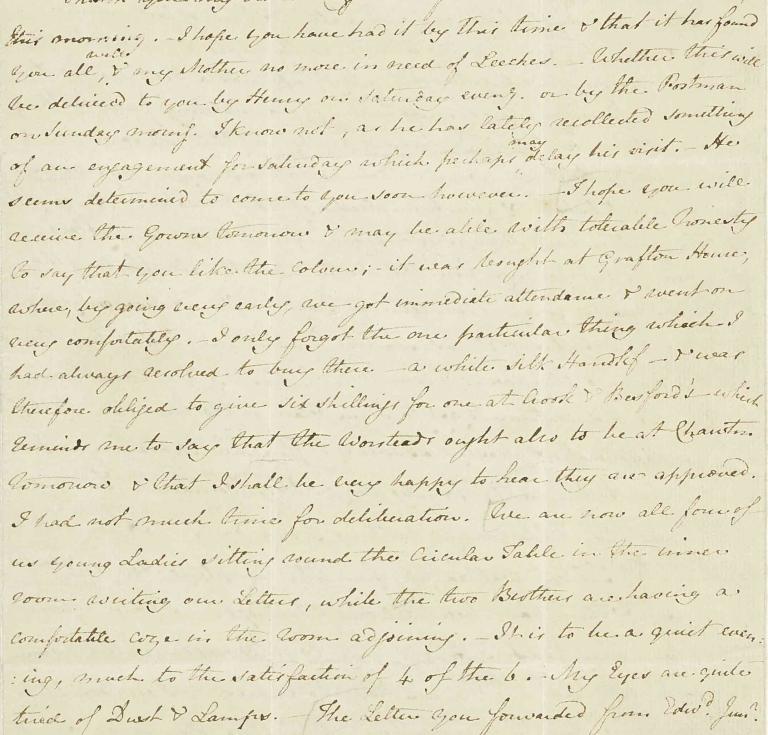 this morning. - I hope you have had it by this time & that it has found
you all well, & my Mother no more in need of Leeches. - Whether this will
be deliver'd to you by Henry on Saturday eveng. or by the Postman
on Sunday morng. I know not, as he has lately recollected something
of an engagement for Saturday which perhaps may delay his visit. - He
seems determined to come to you soon however. - I hope you will
receive the Gown tomorrow & may be able with tolerable honesty
to say that you like the Colour; - it was bought at Grafton House,
where, by going very early, we got immediate attendance & went on
very comfortably. - I only forgot the one particular thing which I
had always resolved to buy there - a white silk Handkf - & was
therefore obliged to give six shillings for one at Crook & Besford's - which
reminds me to say that the Worsteds ought also to be at Chawton
tomorrow & that I shall be very happy to hear they are approved.
I had not much time for deliberation. We are now all four of
us young Ladies sitting round the Circular Table in the inner
room writing our Letters, while the two Brothers are having a
comfortable coze in the room adjoining. - It is to be a quiet even:
:ing, much to the satisfaction of 4 of the 6. - My Eyes are quite
tired of Dust & Lamps. - The Letter you forwarded from Edwd. Junr.